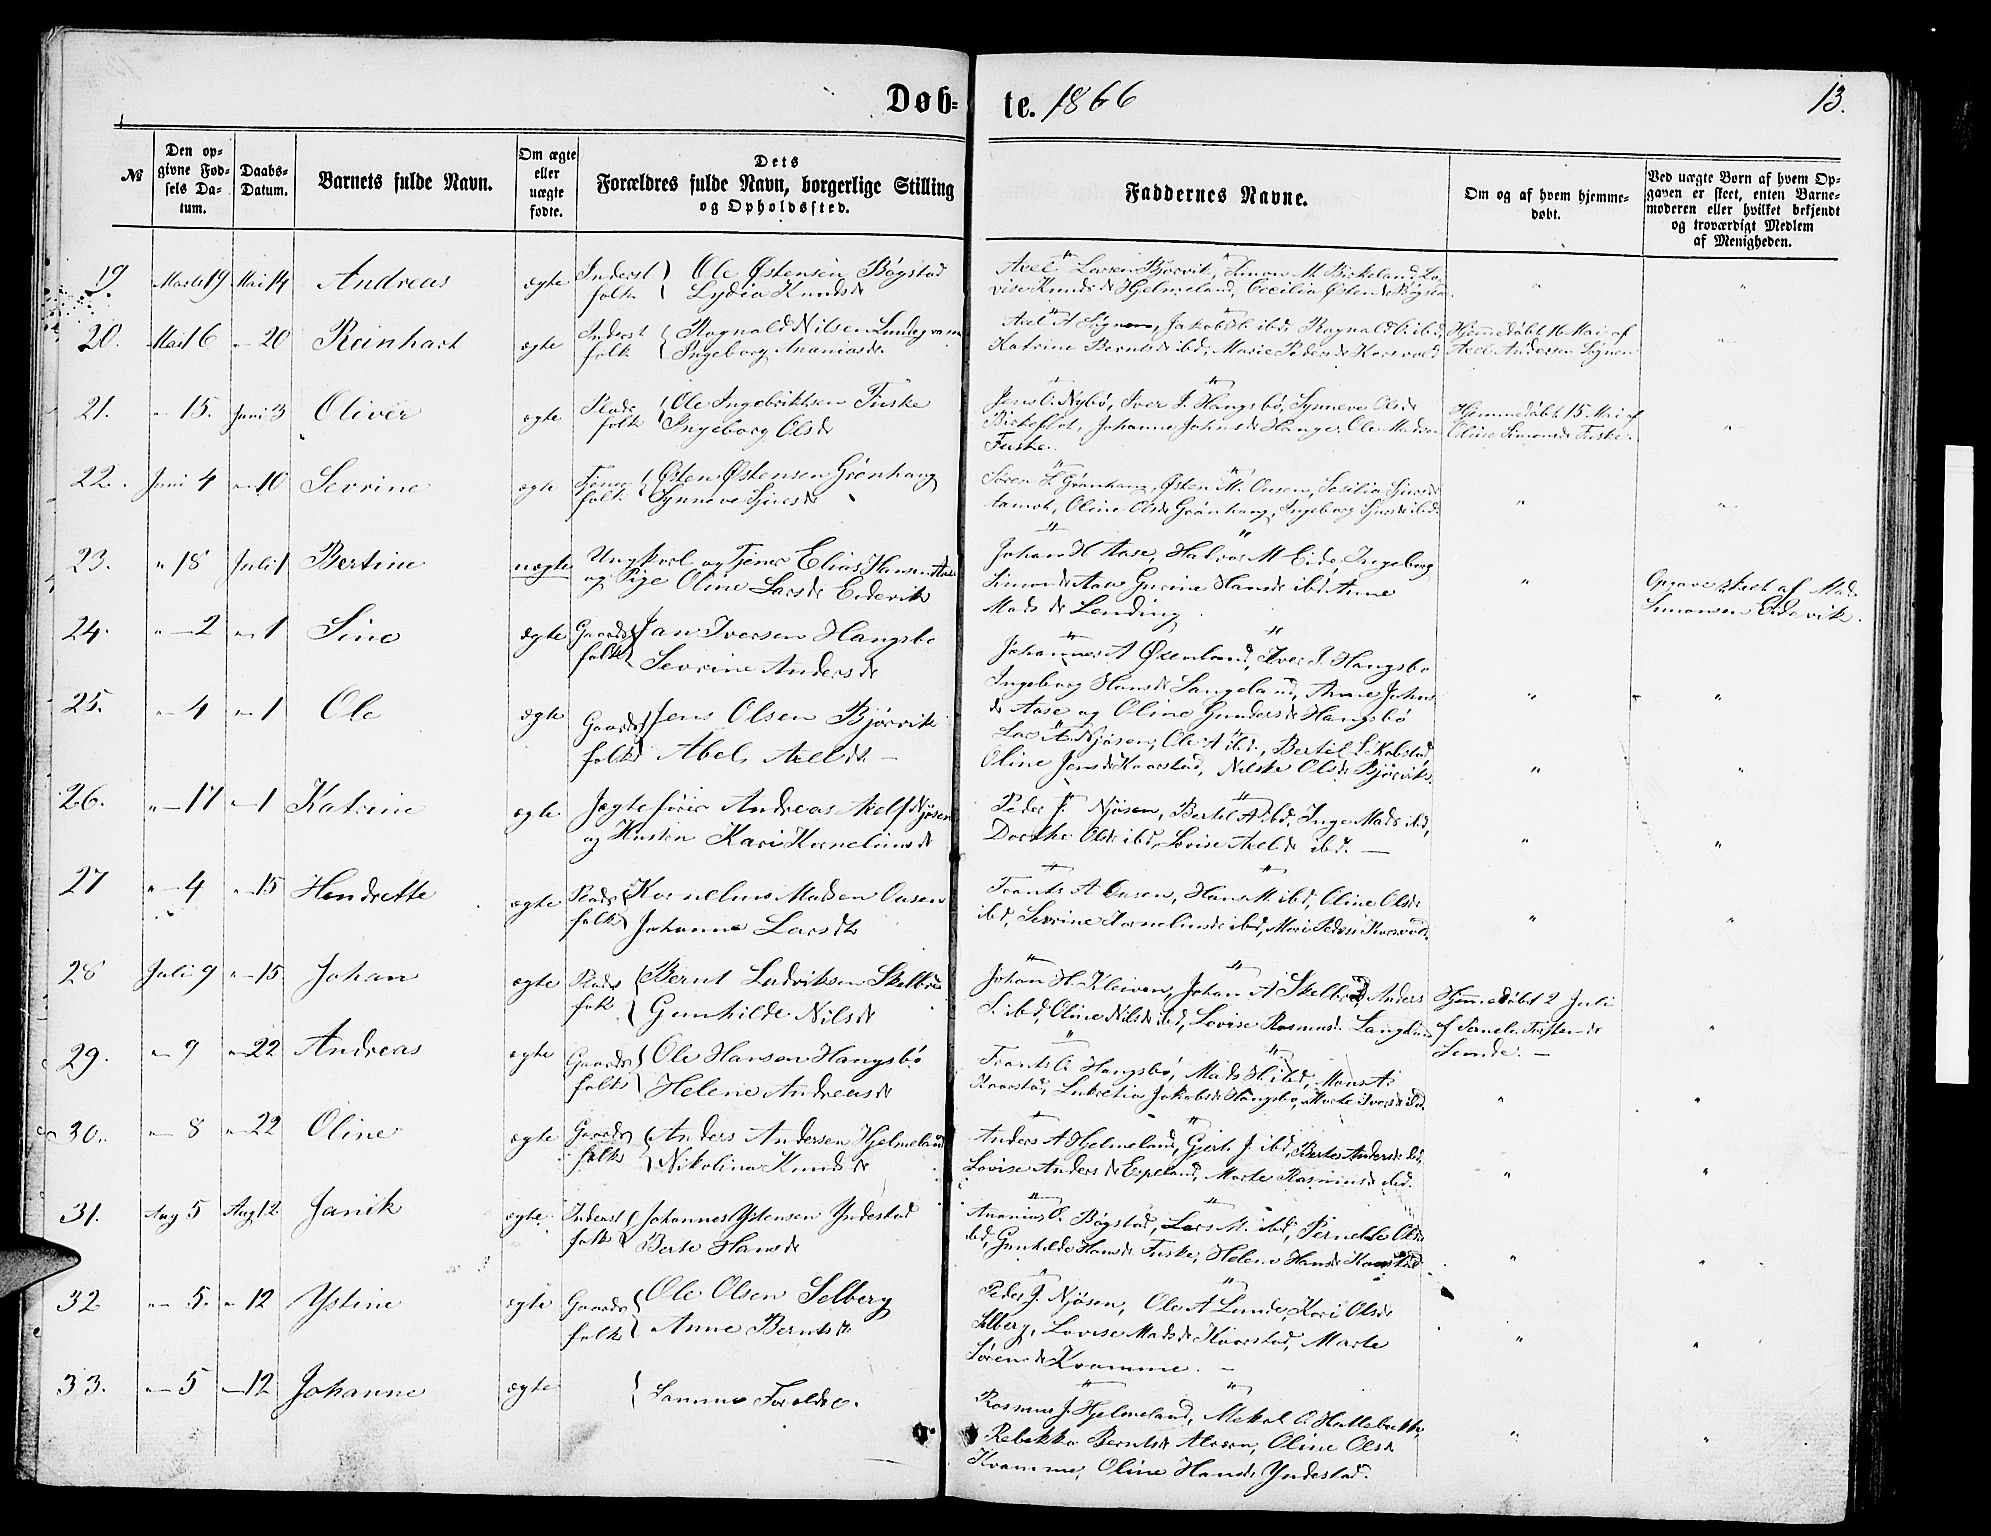 Døb-
te. 1866
13.
№
Den op-
givne Fød-
sels Da-
tum.
Daabs-
Datum.
Barnets fulde Navn.
Om ægte
eller
uægte
fødte.
Dets
Forældres fulde Navn, borgerlige Stilling
og Opholdssted.
Faddernes Navne.
Om og af hvem hjemme-
døbt.
Ved uægte Børn af hvem Op-
gaven er skeet, enten Barne-
moderen eller hvilket bekjendt
og troværdigt Medlem
af Menigheden.
19 Marts 19 Mai 14 Andreas ægte Inderst Ole Østensen Bøgstad
folk Lydia Knudsdr
Axel Larsen Bjørvik, Simon M. Birkeland, Lo-
vise Knudsdr Hjelmeland, Cecilia Østensdr Bøgstad
20. Mai 16 " 20 Reinhart ægte Inderst Rognald Nilsen
folk Ingeborg Ananiasdr
Axel A Lignen, Jakob ibd, Rognald O. ibd,
Katrine Berntsdr ibd, Marie Pedersdr
Hjemmedøbt 16 Mai af
Axel Andersen Lignen
21. " 15. Juni 3 Oliver ægte Plads Ole Ingebriktsen Fuske
folk Ingeborg Olsdr
Jens O. Nybø, Iver J. Hangsbø, Synneve Olsdr
Johanne Johnsdr Hauge, Ole Madsen
Fuske.
Hjemmedøbt 15 Mai af
Oline Simonsdr Fuske.
22. Juni 4 " 10 Sevrine ægte Tjener Østen Østensen Grønhaug
folk Synneve
Søren Grønhaug, Østen M. Ousen,
Oline Olsdr Grønhaug, Ingeborg ibd.
23. " 18 Juli 1 Bertine uægte Ungkarl og Tjener Elias Hansen Aase
og Pige Oline Larsdr Eidevik
Johan H Aase, Halvor M Eide, Ingeborg
Simonsdr Aase, Gurine Hansdr ibd, Anne
Madsdr Lending
Opgave skeet af Mads
Simonsen Eidevik.
24. " 2 " 1 Sine ægte Gaards Jan Iversen Hangsbø
folk Sevrine Andersdr
Johannes A Øxenland, Iver J. Hangsbø
Ingeborg Hansdr Langeland, Anne Johns
dr Aase og Oline Gundersdr Hangsbø
25. " 4 " 1 Ole ægte Gaards Jens Olsen Bjørvik
folk Abel Axelsdr
Lars A. Njøsen, Ole A ibd, Bertel L.
Oline Jensdr Kvarstad, Nilske Olsdr Bjørvik
26. " 17 " 1 Katrine ægte Jægtefører Andreas Axels. Njøsen
og Hustru Kari Korneliusdr
Peder J. Njøsen, Bertel A ibd, Inge Mads ibd,
Dorthe Olsdr ibd, Lovise Axelsdr ibd.
27 " 4 " 15 Hendrette ægte Plads Kornelius Madsen Ousen
folk Johanne Larsdtr
Frants A Ousen, Hans M. ibd, Oline Olsdr
ibd, Sevrine Korneliusdr ibd, Mari Pedersdr
28 Juli 9 " 15. Johan ægte Plads Bernt Ludviksen Skelbred
folk Gunhilde Nilsdr
Johan H. Kleiven, Johan A Skelbred, Anders
ibd, Oline Nilsdr ibd, Lovise Rasmusdr
Hjemmedøbt 2 Juli
af Pernele
Lunde.
29. " 9 " 22 Andreas ægte Gaards Ole Hansen Hangsbø
folk Helene Andreasdr
Frants O. Hangsbø, Mads H. ibd, Mons A.
Kvarstad, Lukretia Jakobsdr Hangsbø, Marte Iversdr ibd.
30. " 8 " 22 Oline ægte Gaards Anders Andersen Hjelmeland
folk Nikolina Knudsdr
Anders A Hjelmeland, Gjert J. ibd, Berte Andersdr ibd,
Lovise Andersdr Espeland, Marte Rasmusdr ibd.
31. Aug 5 Aug 12 Janik ægte Inderst Johannes Ystensen Yndestad
folk Berte Hansdr
Ananias O. Bøgstad, Lars M. ibd, Pernelle Olsdr
ibd, Gunhilde Hansdr Fuske, Helene Hansdr Kvarstad
32 " 5. " 12 Ystine ægte Gaards Ole Olsen Selberg
folk Anne Berntsdr
Peder J. Njøsen, Ole A Lunde, Kari Olsdr
Selberg, Lovise Madsdr Kvarstad, Marte
Sørensdr Kvamme.
33. " 5 " 12 Johanne ægte Samme Forældre.
Rasmus J. Hjelmeland, Mikal O.
Rebekka Berntsdr, Oline Olsdr
Kvamme, Oline Hansdr Yndestad.